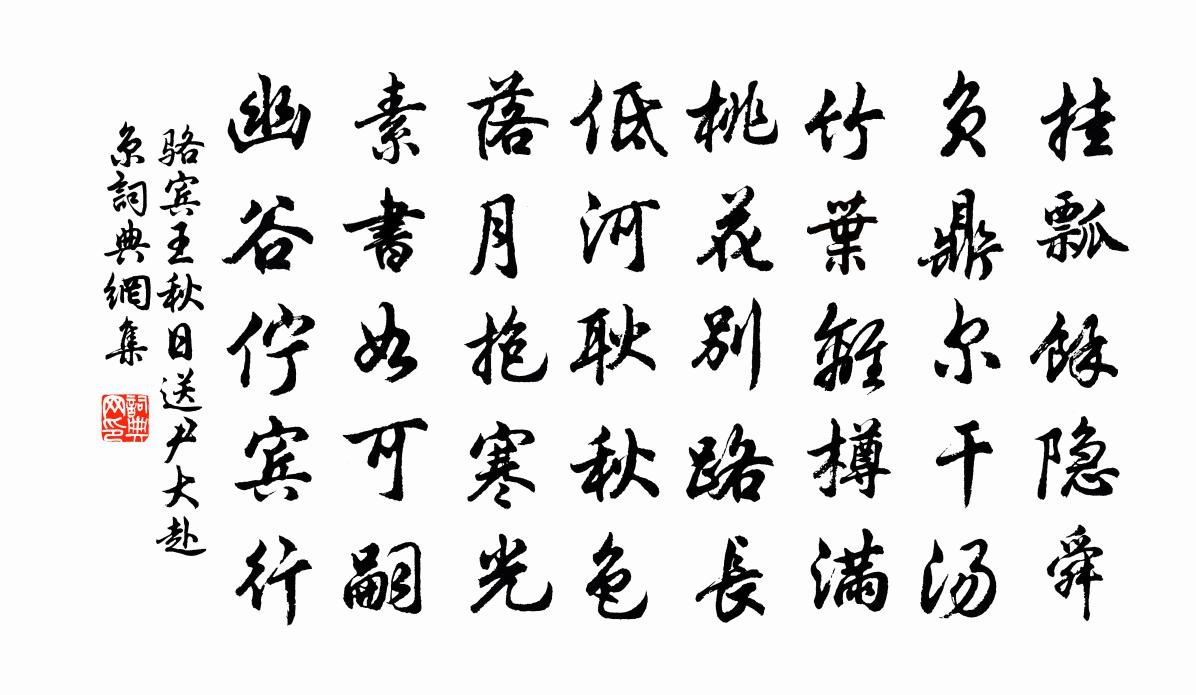 挂瓢餘隐舜
负鼎尔干汤
竹葉離樽满
桃花别路長
低河耿秋色
落月抱寒光
素書如可嗣
幽谷佇宾行
骆宾王秋日送尹大赴
京詞典網集
詞典网印